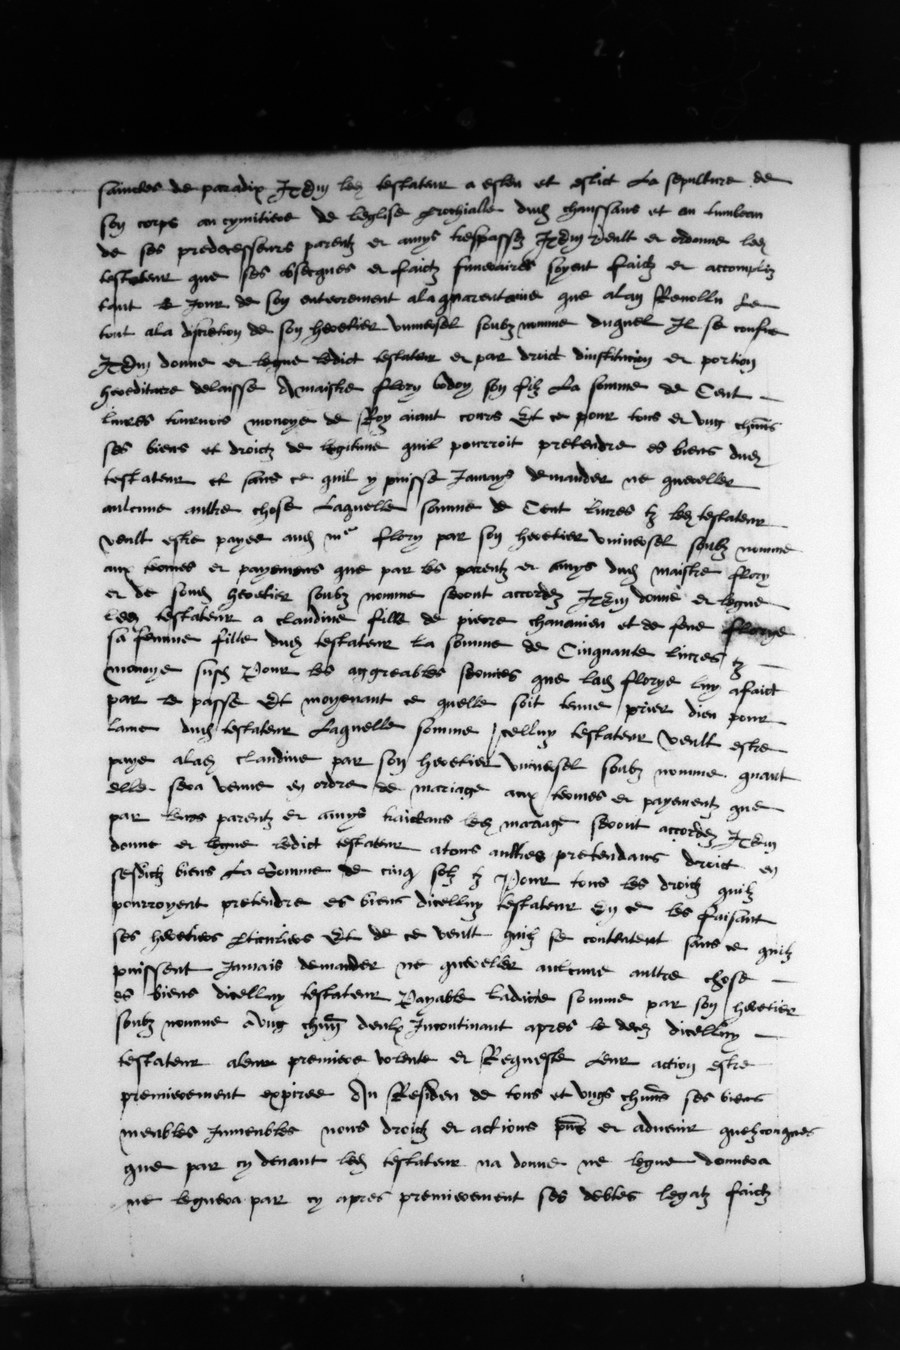 sainctes de paradix Item led testateur a esleu et eslict La sepulture de
son corps au cymitiere de leglise parrochialle dud chaussans et au tumbeau
de ses predecesseurs parentz et amys trespassez Item veult et ordonne led
testateur que ses obseques et faictz funeraires soyent faictz et accomplez
tant le Jour de son enterrement a la quarentaine que alan Revollu Le
tout a la discretion de son heretier universel soubz nomme duquel Il se confie
Item donne et legue ledict testateur et par droict dinstitucion et portion
hereditaire delaisse A maistre flory son filz La somme de Cent
livres tournois monoye de Roy aiant cours Et ce pour tous et ung chuns
ses biens et droictz de legitime quil pourroit pretendre es biens dud
testateur et sans ce quil y puisse Jamays demander ne quereller
aulcune aultre chose Laquelle somme de Cent livres tz led testateur
veult estre payee aud me flory par son heretier universel soubz nomme
aux termes et payemens que par les parentz et amys dud maistre flory
et de sond heretier soubz nomme seront accordez Item donne et legue
led testateur a claudine fille de pierre et de feue florye
sa femme fille dud testateur La somme de Cinquante livres tz
monoye susd Pour les aggreables services que lad florye luy a faict
par le passe Et moyenant ce quelle soit tenue prier dieu pour
lame dud testateur Laquelle somme Icelluy testateur veult estre
paye a lad claudine par son heretier universel soubz nomme quant
elle sera venue en ordre de mariage aux termes et payementz que
par leurs parentz et amys traictans led mariage seront accordez Item
donne et legue ledict testateur a tous aultres pretendans droict en
sesdictz biens La Somme de cinq solz tz Pour tous les droictz quilz
pourroyent pretendre es biens dicelluy testateur En ce les faisant
ses heretiers particuliers Et de ce veult quilz se contentent sans ce quilz
puissent Jamais demander ne quereller aulcune aultre chose
es biens dicelluy testateur Payable ladicte somme par son heretier
soubz nomme a ung chun deulx Incontinant apres le deces dicelluy
testateur a leur premiere volente et Requeste Leur action estre
premierement expiree Au Residu de tous et ungs chuns ses biens
meubles Inmeubles noms droictz et actions pns et advenir quelzconques
que par cy devant led testateur na donne ne legue donnera
ne leguera par cy apres premierement ses debtes legatz faictz